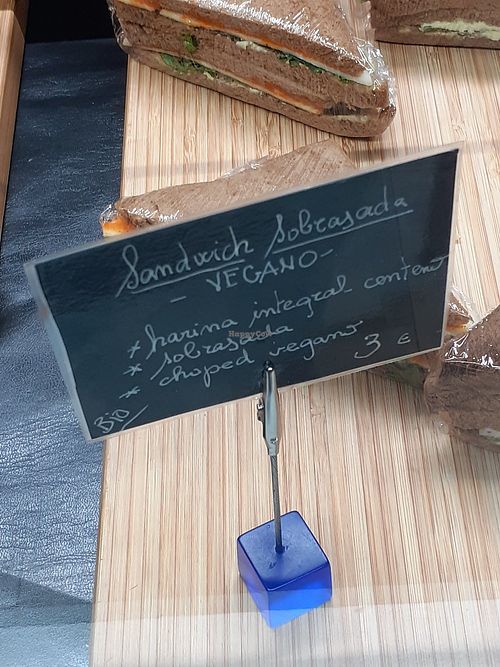 Sandwich Sobrasada
- VEGANO -
* harina integral centeno
* sobrasada
* choped vegano
3 €
BIO
HappyCow